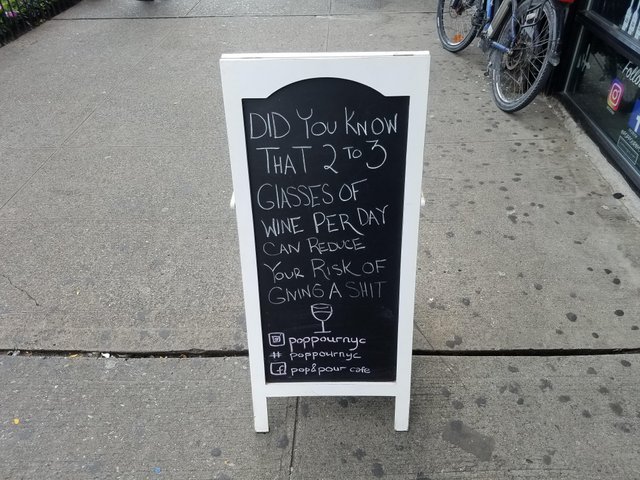 DID YOU KNOW
THAT 2 TO 3
GLASSES OF
WINE PER DAY
CAN REDUCE
YOUR RISK OF
GIVING A SHIT
poppournyc
# poppournyc
f pop&pour cafe